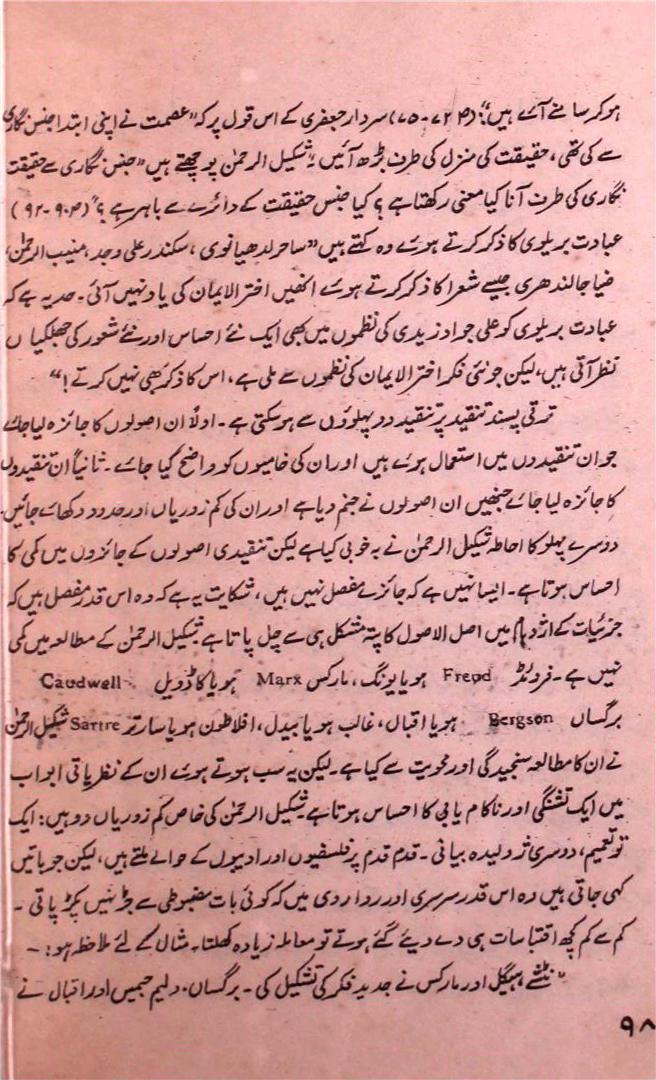 ہوکر سامنے آئے ہیں؟“ (۷۴-۷۵) سردار جعفری کے اس قول پر کہ ”عصمت نے اپنی ابتدا جنس نگاری
سے کی تھی، حقیقت کی منزل کی طرف بڑھ آئیں“ شکیل الرحمٰن پوچھتے ہیں ”جنس نگاری سے حقیقت
نگاری کی طرف آنا کیا معنی رکھتا ہے؟ کیا جنس حقیقت کے دائرے سے باہر ہے؟“
عبادت بریلوی کا ذکر کرتے ہوئے وہ کہتے ہیں ”ساحر لدھیانوی، سکندر علی وجد، منیب الرحمٰن،
ضیا جالندھری جیسے شعرا کا ذکر کرتے ہوئے انھیں اختر الایمان کی یاد نہیں آئی۔ حد یہ ہے کہ
عبادت بریلوی کو علی جواد زیدی کی نظموں میں بھی ایک نئے احساس اور نئے شعور کی جھلکیاں
نظر آتی ہیں، لیکن جو نئی فکر اختر الایمان کی نظموں سے ملی ہے، اس کا ذکر بھی نہیں کرتے!“
ترقی پسند تنقید پر تنقید دو پہلوؤں سے ہوسکتی ہے۔ اولاً ان اصولوں کا جائزہ لیا جائے
جو ان تنقیدوں میں استعمال ہوئے ہیں اور ان کی خامیوں کو واضح کیا جائے۔ ثانیاً ان تنقیدوں
کا جائزہ لیا جائے جنھیں ان اصولوں نے جنم دیا ہے اور ان کی کم زوریاں اور حدود دکھائے جائیں۔
دوسرے پہلو کا احاطہ شکیل الرحمٰن نے بہ خوبی کیا ہے لیکن تنقیدی اصولوں کے جائزوں میں کمی کا
احساس ہوتا ہے۔ ایسا نہیں ہے کہ جائزے مفصل نہیں ہیں، شکایت یہ ہے کہ وہ اس قدر مفصل ہیں کہ
جزئیات کے اژدہام میں اصل الاصول کا پتہ مشکل ہی سے چل پاتا ہے۔ شکیل الرحمٰن کے مطالعہ میں کمی
نہیں ہے۔ فروئڈ Freud ہو یا یونگ، مارکس Marx ہو یا کاڈویل Caudwell
برگساں Bergson ہو یا اقبال، غالب ہو یا بیدل، افلاطون ہو یا سارتر Sartre شکیل الرحمٰن
نے ان کا مطالعہ سنجیدگی اور محویت سے کیا ہے۔ لیکن یہ سب ہوتے ہوئے ان کے نظریاتی ابواب
میں ایک تشنگی اور ناکام یابی کا احساس ہوتا ہے۔ شکیل الرحمٰن کی خاص کم زوریاں دو ہیں: ایک
تو تعمیم، دوسری ژولیدہ بیانی۔ قدم قدم پر فلسفیوں اور ادیبوں کے حوالے ملتے ہیں، لیکن جو باتیں
کہی جاتی ہیں وہ اس قدر سرسری اور رواروی میں کہ کوئی بات مضبوطی سے جڑ نہیں پکڑ پاتی۔
کم سے کم کچھ اقتباسات ہی دے دیئے گئے ہوتے تو معاملہ زیادہ کھلتا۔ مثال کے لئے ملاحظہ ہو:۔
”نٹشے، ہیگل اور مارکس نے جدید فکر کی تشکیل کی۔ برگساں، ولیم جیمس اور اقبال نے
۹۸